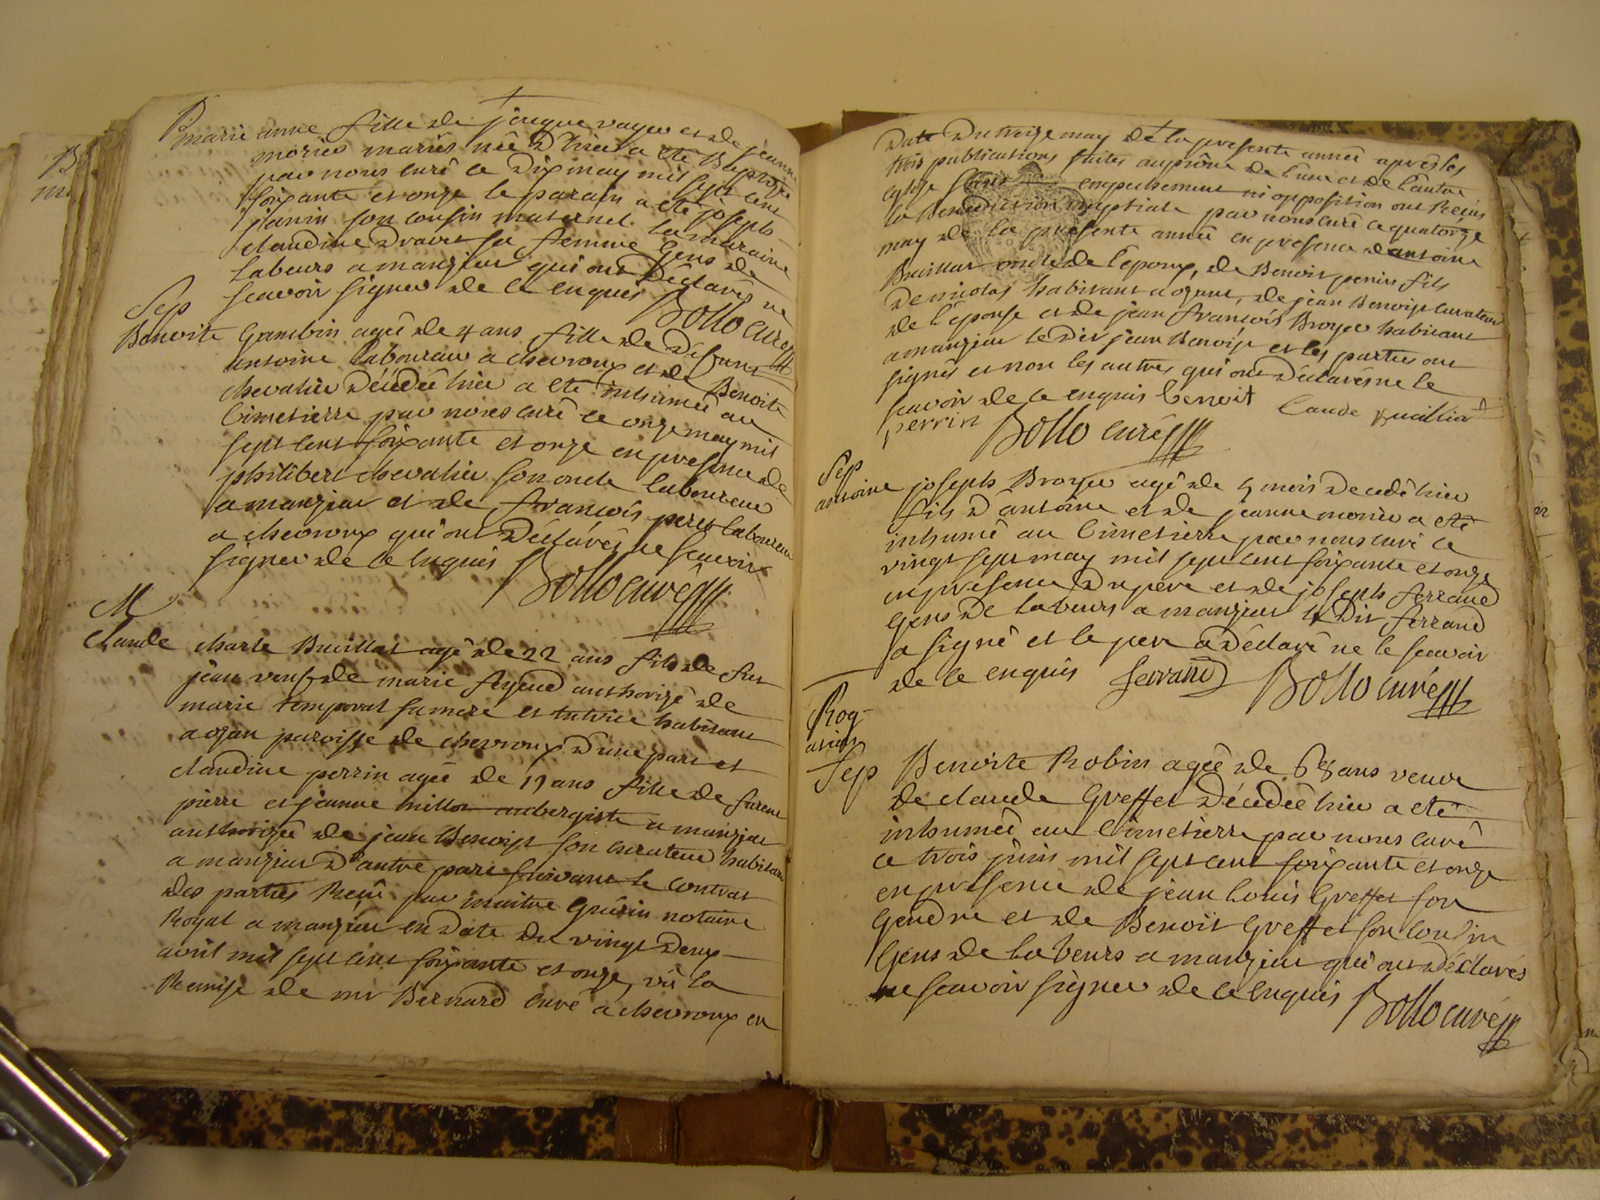 B
marie anne fille de jacque vayer et de jeanne
morier mariés née d'hier a été Baptisée
par nous curé ce dix may mil sept cent
soixante et onze le parain a été joseph
janin son cousin maternel la maraine
claudine sa femme gens de
labeurs a manziat qui ont déclarés ne
scavoir signer de ce enquis Bollo curé
Sep
Benoite Gambin agée de 4 ans fille de défunt
antoine laboureur a chevroux et de Benoite
chevalier décédée hier a été inhumée au
Cimetierre par nous curé ce onze may mil
sept cent soixante et onze en presence de
philibert chevalier son oncle laboureur
a manziat et de francois laboureur
a chevroux qui ont déclarés ne scavoir
signer de ce enquis Bollo curé
M
Claude charle Buillat agé de 22 ans fils de feu
jean veuf de marie feyeud authorizé de
marie temporal sa mere et tutrice habitant
a ozan paroisse de chevroux d'une part et
claudine perrin agée de 19 ans fille de furent
pierre et jeanne millon aubergiste a manziat
authorizée de jean Benoist son curateur habitant
a manziat d'autre part suivant le contrat
des parties Recû par maitre Guérin notaire
Royal a manziat en date du vingt deux
avril mil sept cent soixante et onze, vû la
Remise de mr Bernard curé a chevroux en
Date du treize may de la presente année apres les
trois publications faites au prône de l'une et de l'autre
eglise sans empechement ni opposition ont Recûs
la Benediction nuptiale par nous curé ce quatorze
may de la presente année en presence d'antoine
Buillat oncle de l'epoux, de Benoit perrin fils
de nicolas habitant a ozan, de jean Benoist curateur
de l'epouse et de jean francois Broyer habitant
a manziat le dit jean Benoist et les parties ont
signés et non les autres qui ont déclarés ne le
scavoir de ce enquis benoit Claude Builliad
perrin Bollo curé
Sep
antoine joseph Broyer agé de 5 mois décédé hier
fils d'antoine et de jeanne morier a eté
inhumé au Cimetierre par nous curé ce
vingt sept may mil sept cent soixante et onze
en presence du pere et de joseph ferrand
gens de labeurs a manziat le dit ferrand
a signé et le pere a déclaré ne le scavoir
de ce enquis ferrand Bollo curé
Rog-
ations
Sep Benoite Robin agée de 68 ans veuve
de claude Greffet décédée hier a eté
inhumée au Cimetierre par nous curé
ce trois juin mil sept cent soixante et onze
en presence de jean louis Greffet son
Gendre et de Benoit Greffet son cousin
Gens de labeurs a manziat qui ont déclarés
ne scavoir signer de ce enquis Bollo curé